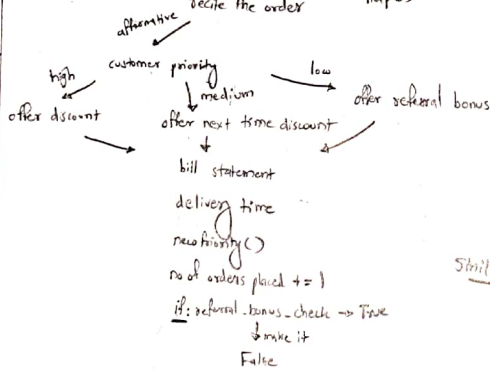 the order
afternative
customer priority
high
medium
low
offer discount
offer next time discount
offer referral bonus
bill statement
delivery time
newPriority()
no of orders placed += 1
if: referral_bonus_check → True
make it
False